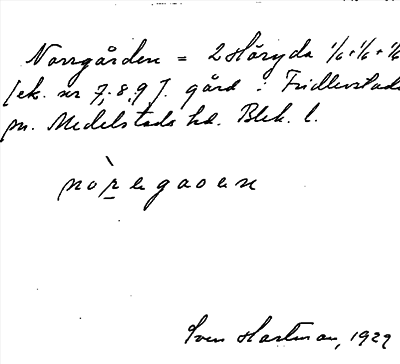 Norrgården = 2 Höryda 1/6 + 1/6 + 1/6
[ek. nr 7, 8, 9]. gård : Fridlevstads
sn. Medelstads hd. Blek. l.
nòregaoen
Sven Hartman, 1929